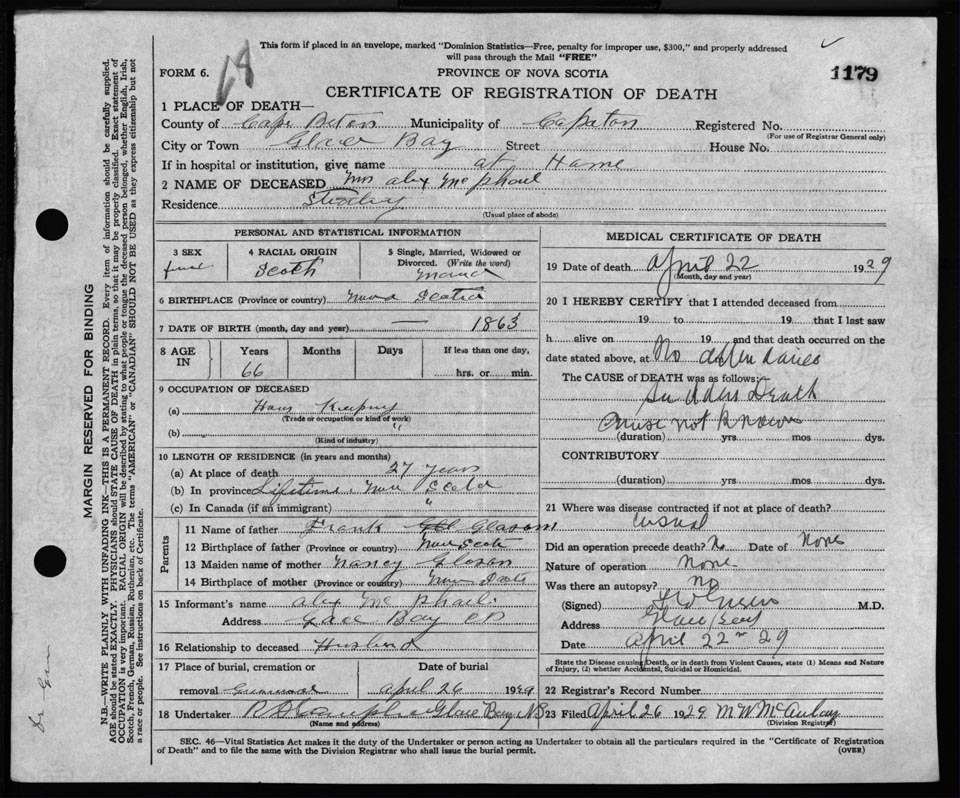 This form if placed in an envelope, marked "Dominion Statistics—Free, penalty for improper use, $300," and properly addressed
will pass through the Mail "FREE"
1179
FORM 6.
PROVINCE OF NOVA SCOTIA
CERTIFICATE OF REGISTRATION OF DEATH
1 PLACE OF DEATH—
County of Cape Breton Municipality of Registered No.
(For use of Registrar General only)
City or Town Glace Bay Street House No.
If in hospital or institution, give name at Home
2 NAME OF DECEASED Mrs Alex McPhail
Residence
(Usual place of abode)
PERSONAL AND STATISTICAL INFORMATION
3 SEX
4 RACIAL ORIGIN
Scotch
5 Single, Married, Widowed or
Divorced. (Write the word)
6 BIRTHPLACE (Province or country) Nova Scotia
7 DATE OF BIRTH (month, day and year) — 1863
8 AGE
IN
Years
Months
Days
If less than one day,
66
hrs. or min.
9 OCCUPATION OF DECEASED
(a) House Keeping
(Trade or occupation or kind of work)
(b) "
(Kind of industry)
10 LENGTH OF RESIDENCE (in years and months)
(a) At place of death 27 years
(b) In province Lifetime Nova Scotia
(c) In Canada (if an immigrant) "
Parents
11 Name of father Frank
12 Birthplace of father (Province or country) Nova Scotia
13 Maiden name of mother Nancy
14 Birthplace of mother (Province or country) Nova Scotia
15 Informant's name Alex McPhail
Address Glace Bay CB
16 Relationship to deceased Husband
17 Place of burial, cremation or
Date of burial
removal April 26 1929
18 Undertaker Glace Bay NS
(Name and address)
MEDICAL CERTIFICATE OF DEATH
19 Date of death April 22 1929
(Month, day and year)
20 I HEREBY CERTIFY that I attended deceased from
19 to 19 that I last saw
h alive on 19 and that death occurred on the
date stated above, at No attendance
The CAUSE of DEATH was as follows:
Sudden Death
Cause not known
(duration) yrs. mos. dys.
CONTRIBUTORY
(duration) yrs. mos. dys.
21 Where was disease contracted if not at place of death?
Did an operation precede death? No Date of None
Nature of operation None
Was there an autopsy? No
(Signed) M.D.
Address Glace Bay
Date April 22nd 29
State the Disease causing Death, or in death from Violent Causes, state (1) Means and Nature
of Injury, (2) whether Accidental, Suicidal or Homicidal.
22 Registrar's Record Number
23 Filed April 26 1929
(Division Registrar)
SEC. 46—Vital Statistics Act makes it the duty of the Undertaker or person acting as Undertaker to obtain all the particulars required in the "Certificate of Registration
of Death" and to file the same with the Division Registrar who shall issue the burial permit.
(OVER)
MARGIN RESERVED FOR BINDING
N.B.—WRITE PLAINLY WITH UNFADING INK—THIS IS A PERMANENT RECORD. Every item of information should be carefully supplied.
AGE should be stated EXACTLY. PHYSICIANS should STATE CAUSE OF DEATH in plain terms, so that it may be properly classified. Exact statement of
OCCUPATION is very important. RACIAL ORIGIN will be described by stating to what people or tongue the deceased person belonged, whether English, Irish,
Scotch, French, German, Russian, Ruthenian, etc. The terms "AMERICAN" or "CANADIAN" SHOULD NOT BE USED as they express citizenship but not
a race or people. See instructions on back of Certificate.